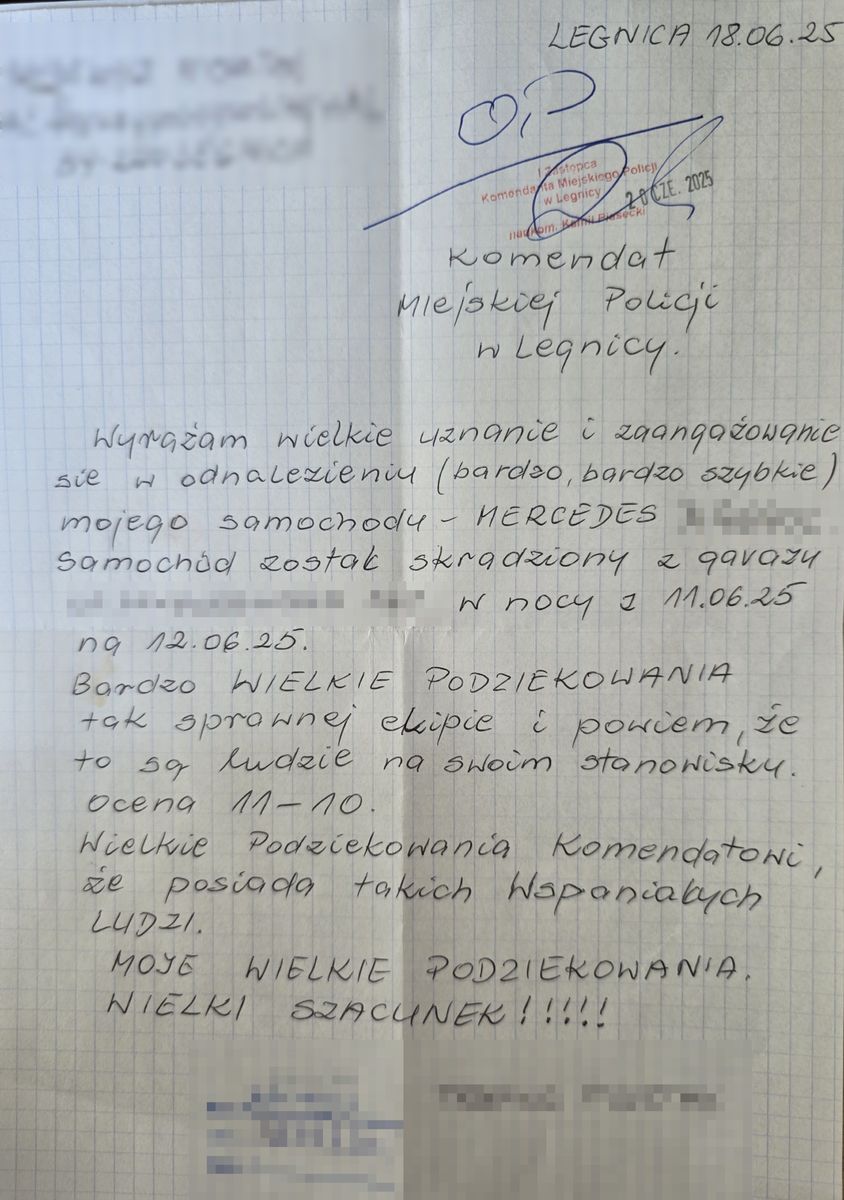 LEGNICA 18.06.25
OP
I zastępca
Komendanta Miejskiego Policji
w Legnicy
20 CZE. 2025
nadkom. Kamil Piasecki
Komendat
Miejskiej Policji
w Legnicy.
Wyrążam wielkie uznanie i zaangażowanie
sie w odnalezieniu (bardzo, bardzo szybkie)
mojego samochodu - MERCEDES
Samochód został skradziony z garażu
w nocy z 11.06.25
na 12.06.25.
Bardzo WIELKIE PODZIEKOWANIA
tak sprawnej ekipie i powiem, że
to są ludzie na swoim stanowisku.
Ocena 11-10.
Wielkie Podziekowania Komendatowi,
że posiada takich Wspaniałych
LUDZI.
MOJE WIELKIE PODZIEKOWANIA.
WIELKI SZACUNEK!!!!!